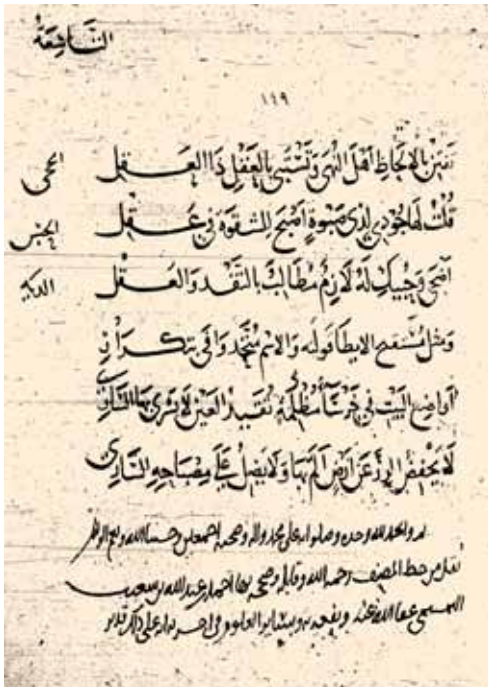 التَّاسِعَةُ
١٤٩
تَفْتِنُ بِالالحَاظِ أهْلَ النُّهَى وَتَسْتَبِي بِالعَقْلِ ذَا العَقْلِ الحجى
قُلْتُ لَهَا جُودِي لِذِي صَبْوَةٍ أصْبَحَ لِلشَّقْوَةِ فِي عَقْلِ الحبس
أضحَى وَحُبِّيكِ لَهُ لَازِمٌ مُطَالَبٌ بِالنَّقْدِ وَالعَقْلِ الدية
وَمثل مُسْتقبح الايطا قوله وَالاسم مُتَّحد وَافى بتكرار
أواضِع البَيْت في خَرْسَاءَ مُظْلِمَةٍ تُقَيِّدُ العَيْرَ لَا يَسْرِى بِهَا السَّارِى
لَا يَخْفِضُ الرِّزَّ عَن أرْضٍ ألَمَّ بهَا وَلَا يَضِلُّ عَلَى مِصْبَاحِهِ السَّارِى
والحمد لله وحده وصلواته على محمد واله وصحبه اجمعين وحسبنا الله ونعم الوكيل
نقل من خط المصنف رحمه الله وقابله وصححه احمد بن عبد الله بن
عفا الله عنه ونفعه به وبسائر العلوم على ذلك قدير